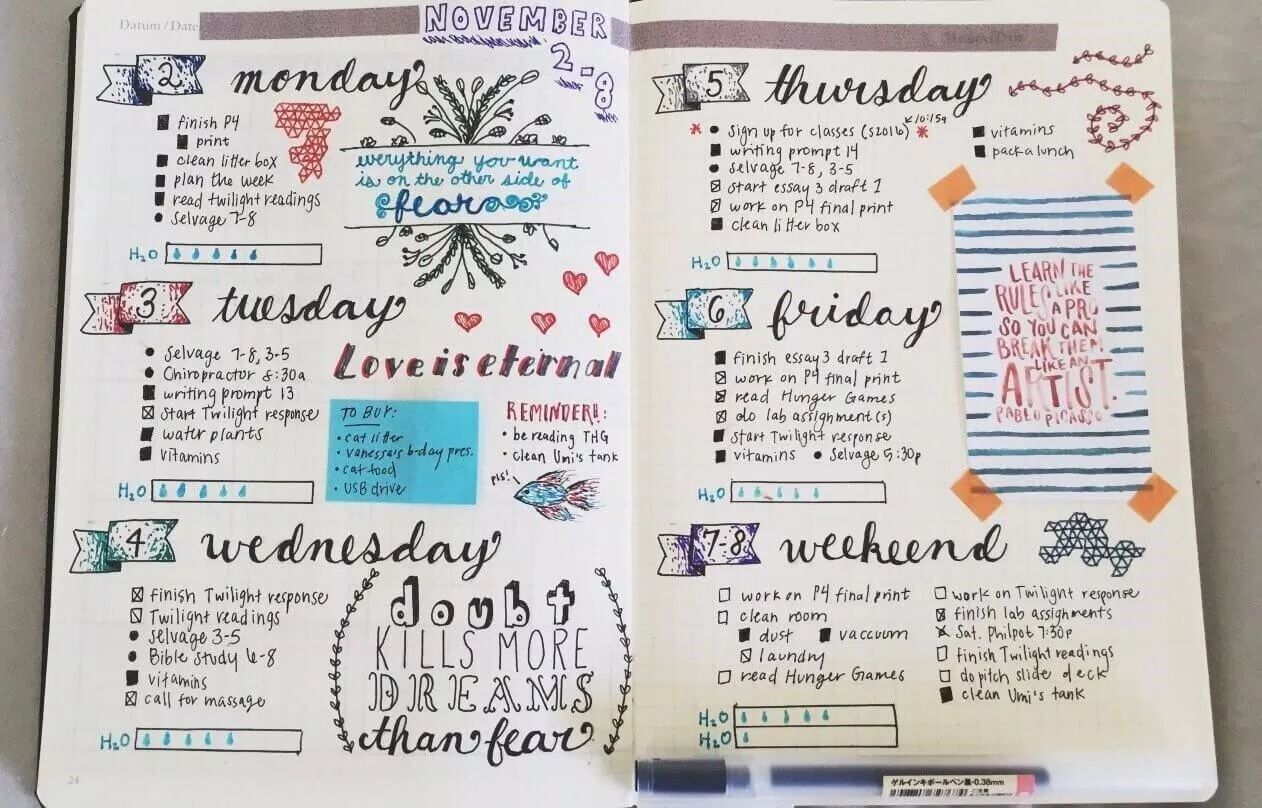 Datum / Date
NOVEMBER
2-8
2 monday
finish P4
print
clean litter box
plan the week
read twilight readings
Selvage 7-8
H2O
everything you want
is on the other side of
fear
3 tuesday
Selvage 7-8, 3-5
Chiropractor 8:30a
writing prompt 13
start Twilight response
water plants
vitamins
H2O
Love is eternal
TO BUY:
• cat litter
• vanessa's b-day pres.
• cat food
• USB drive
REMINDER!:
• be reading THG
• clean Umi's tank
pls!
4 wednesday
finish Twilight response
Twilight readings
Selvage 3-5
Bible study 6-8
vitamins
call for massage
H2O
doubt
KILLS MORE
DREAMS
than fear
24
5 thursday
10:15a
* sign up for classes (S2016) *
writing prompt 14
selvage 7-8, 3-5
start essay 3 draft 1
work on P4 final print
clean litter box
vitamins
pack a lunch
H2O
6 friday
finish essay 3 draft 1
work on P4 final print
read Hunger Games
do lab assignment(s)
start Twilight response
vitamins • Selvage 5:30p
H2O
LEARN THE
RULES LIKE
A PRO
SO YOU CAN
BREAK THEM
LIKE AN
ARTIST.
PABLO PICASSO
7-8 weekeend
work on P4 final print
clean room
dust vaccuum
laundry
read Hunger Games
work on Twilight response
finish lab assignments
Sat. Philpot 7:30p
finish Twilight readings
do pitch slide deck
clean Umi's tank
H2O
H2O
ゲルインキボールペン黒・0.38mm